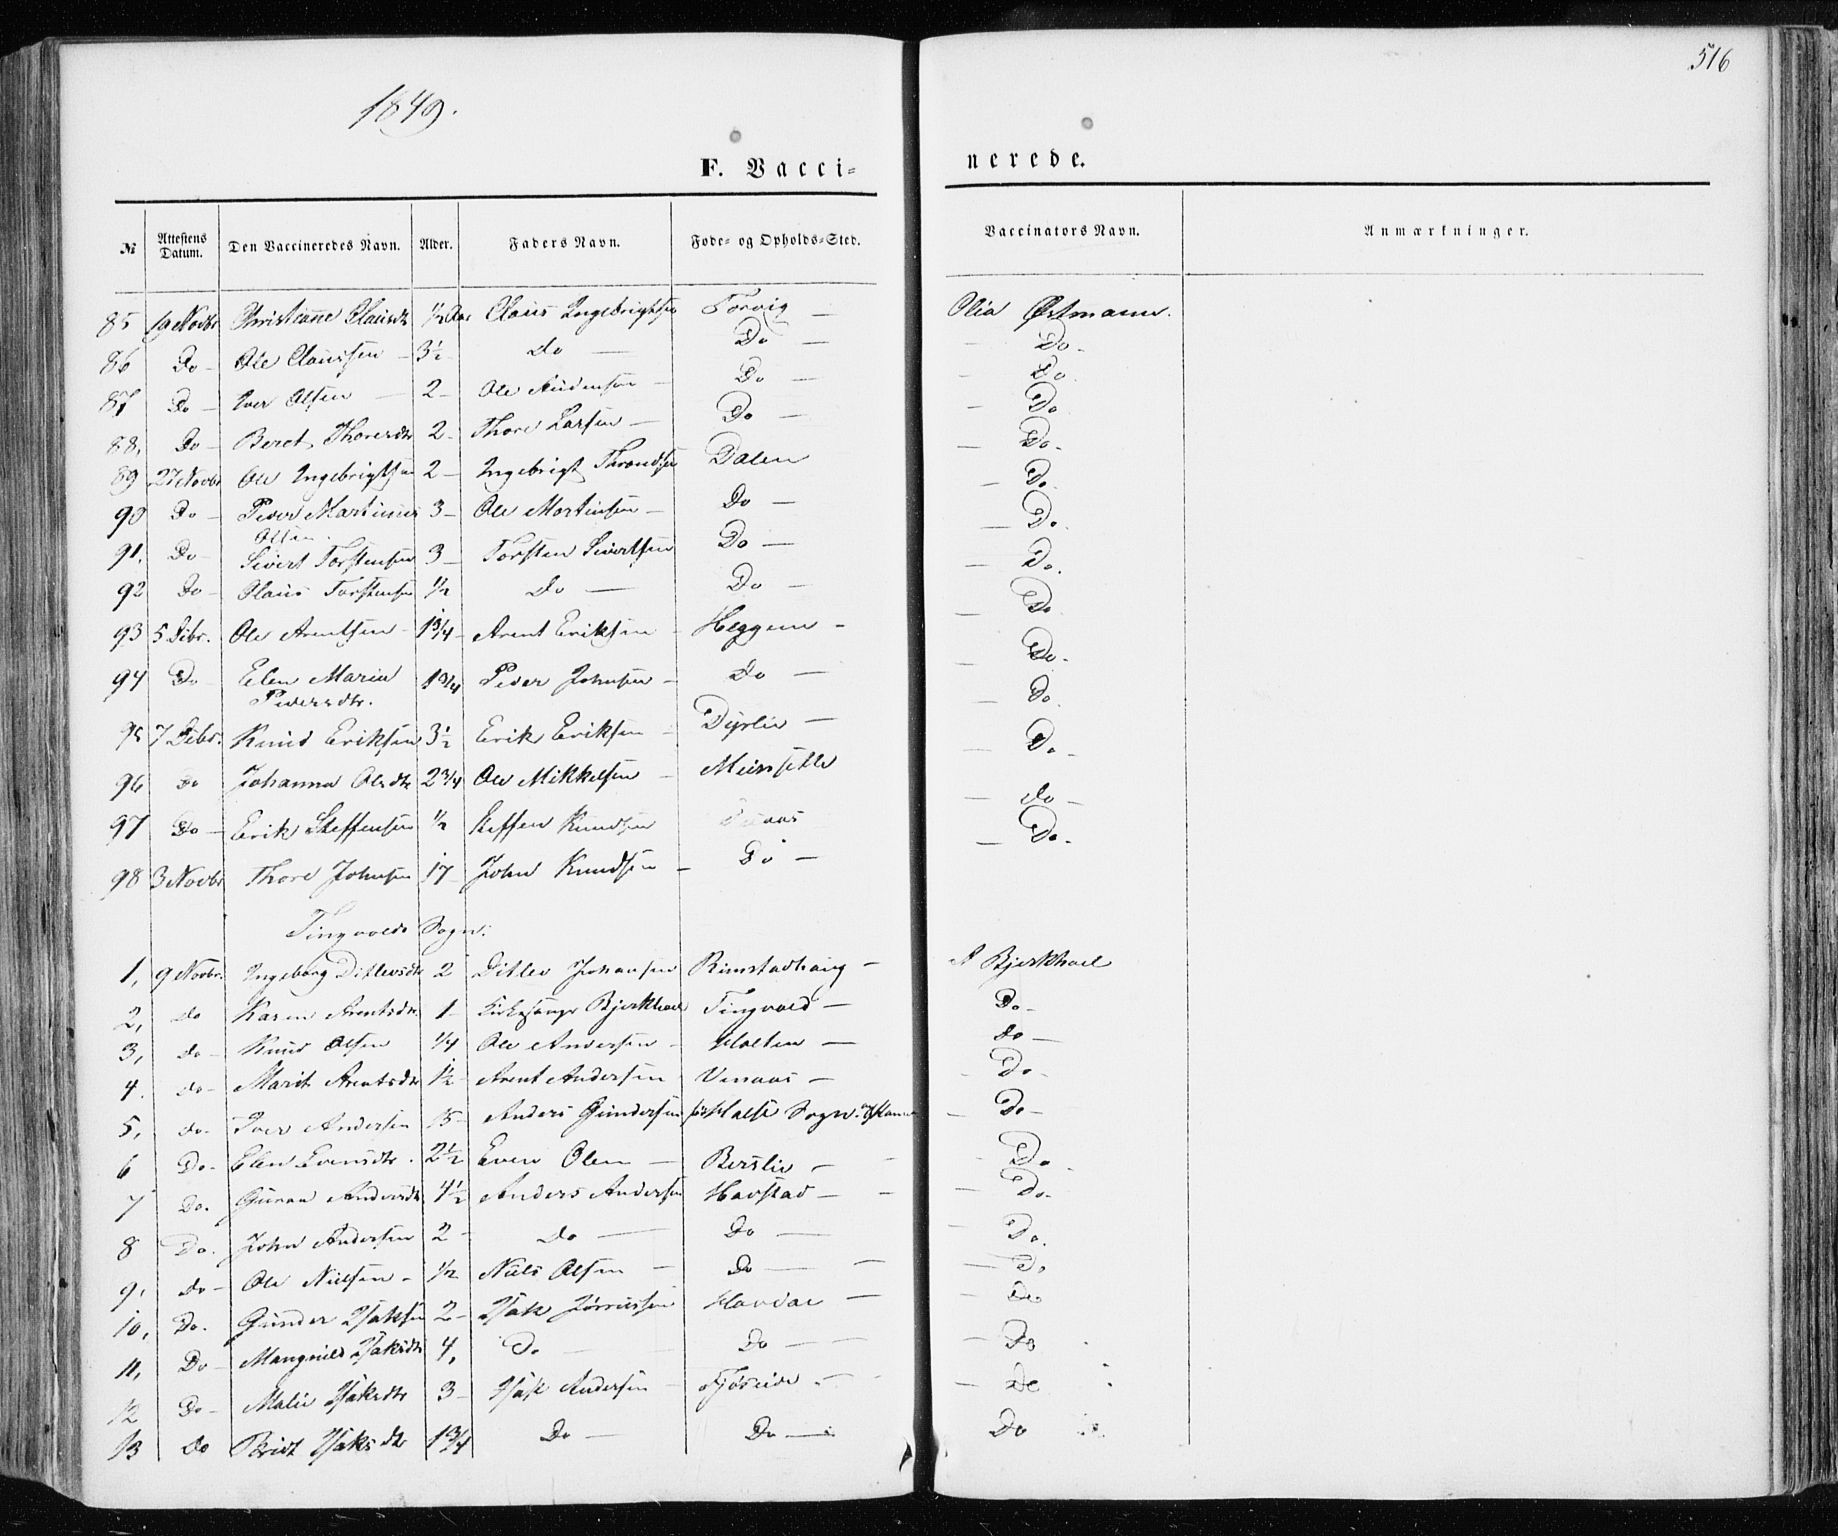 516
1849.
F. Vacci-
nerede.
№ Attestens Datum. Den Vaccineredes Navn. Alder. Faders Navn. Føde- og Opholds-Sted. Vaccinators Navn. Anmærkninger.
85 Novbr ½ Claus Ingebrigtsen Torvig — Olia Østmann.
86 Do — Ole Claussen — 3½ Do — Do — — Do -
87 Do — Iver Olsen — 2 - Ole — Do — — Do
88, Do — Beret Thoresdtr 2 - Thore Larsen — Do — — Do
89 27 Novbr Ole Ingebrigtsen 2 — Ingebrigt Throndsen Dalen — Do.
90 Do — Peder Martinus 3 — Ole Mortensen — Do — — Do.
Olsen.
91. Do - Sivert Torstensen 3 — Torsten Sivertsen Do — — Do.
92 Do - Claus Torstensen ½ Do — Do — — Do.
93 5 Debr. Ole Arentsen - 1¾ - Arent Eriksen - Heggem - — Do
94 Do - Elen Maria 1¾ Peder Johnsen — Do — — Do.
Pedersdtr.
95 7 Debr. Knud Eriksen 3½ Erik Eriksen - Dyrlie — — Do
96 Do Johanna Olsdtr 2¾ Ole Mikkelsen - — Do -
97 Do — Erik Steffensen ½ Steffen Knudsen — do -
98 3 Novbr Thore Johnsen 17 - John Knudsen - Do — — Do.
Tingvolds Sogn.
1, 9 Novbr. Ingeborg Ditlevsdtr 2 Ditlev Johansen Rimstadhaug — A Bjerkhoel
2, do Karen Arentsdtr 1 - Kirkesanger Bjerkhoel Tingvold — Do -
3, do - Knud Olsen ¼ Ole Andersen - Holten — do —
4. do - Marit Arentsdtr 1½ - Arent Andersen Vinaas — — Do -
5, do - Iver Andersen Anders Gundersen Halse Sogn — Do -
6 Do - Elen Evensdtr. 2½ Even Olsen — Berslie — — Do
7 Do. Guran Andersdtr 4½ Anders Andersen Havstad — — Do -
8 Do. John Andersen 2 - Do — Do — — Do.
9, do — Ole Nielsen - ½ Niels Olsen — Do — — Do
10, Do. Gunder Isaksen 2 - Isak — Do
11, Do - Mangnild Isaksdtr 4, Do — Do — — Do
12 Do - Malie Isaksdtr 3 - Isak Andersen - — Do
13 Do Brit Isaksdtr 1¾ Do — Do — Do